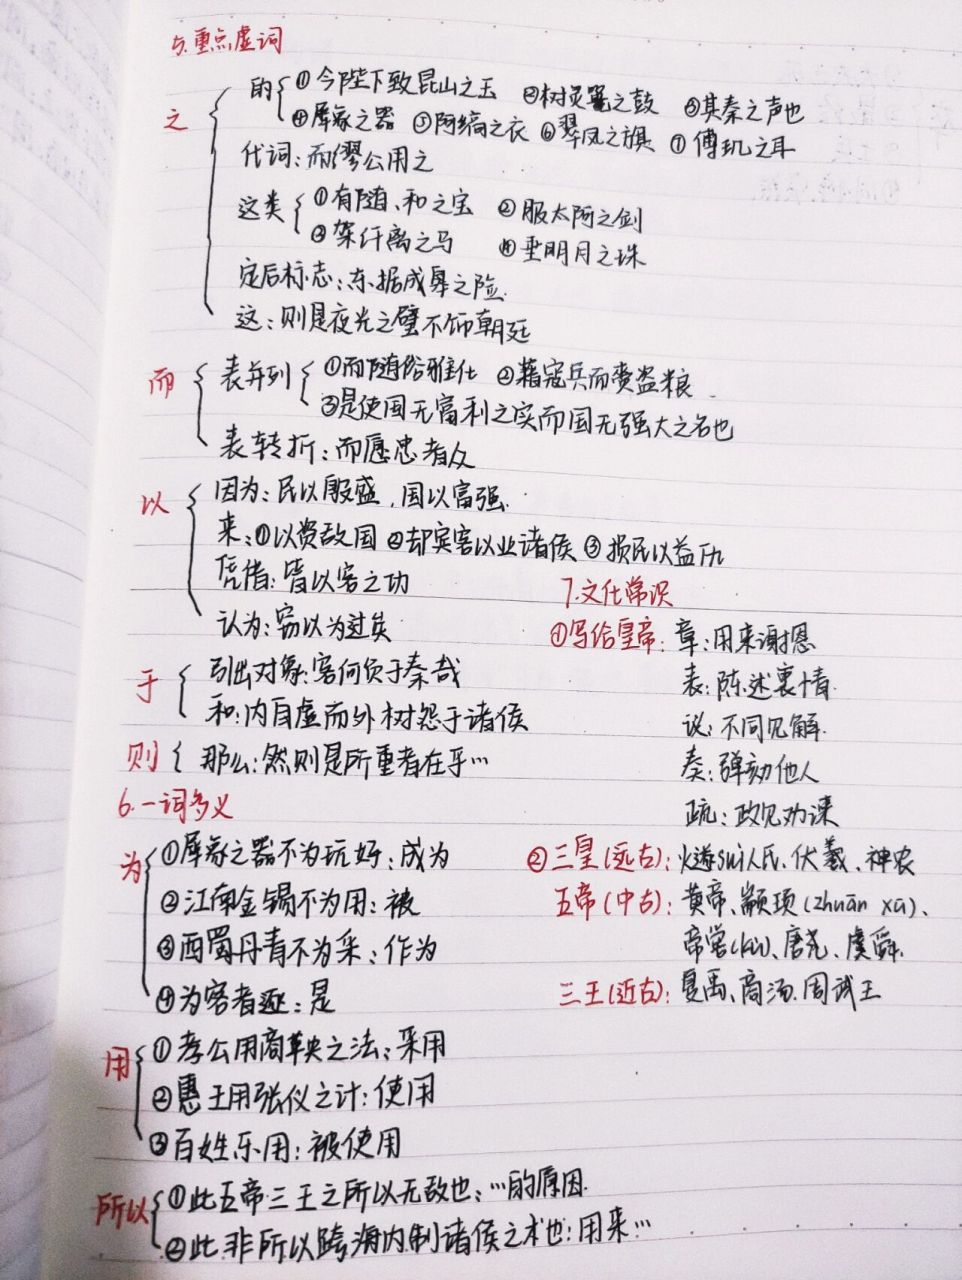 5.重点虚词
之
的 ①今陛下致昆山之玉 ②树灵鼍之鼓 ③其秦之声也
④犀象之器 ⑤阿缟之衣 ⑥翠凤之旗 ⑦傅玑之耳
代词:而缪公用之
这类 ①有随、和之宝 ②服太阿之剑
③架纤离之马 ④垂明月之珠
定后标志:东据成皋之险
这:则是夜光之璧不饰朝廷
而
表并列 ①而随俗雅化 ②藉寇兵而赍盗粮
③是使国无富利之实而国无强大之名也
表转折:而愿忠者众
以
因为:民以殷盛,国以富强
来:①以资敌国 ②却宾客以业诸侯 ③损民以益仇
凭借:皆以客之功
认为:窃以为过矣
于
引出对象:客何负于秦哉
和:内自虚而外树怨于诸侯
则 那么:然则是所重者在乎…
6.一词多义
为
①犀象之器不为玩好:成为
②江南金锡不为用:被
③西蜀丹青不为采:作为
④为客者逐:是
用
①孝公用商鞅之法:采用
②惠王用张仪之计:使用
③百姓乐用:被使用
所以
①此五帝三王之所以无敌也:…的原因
②此非所以跨海内制诸侯之术也:用来…
7.文化常识
①写给皇帝:章:用来谢恩
表:陈述衷情
议:不同见解
奏:弹劾他人
疏:政见劝谏
②三皇(远古):燧sui人氏、伏羲、神农
五帝(中古):黄帝、颛顼(zhuān xū)、
帝喾(kù)、唐尧、虞舜
三王(近古):夏禹、商汤、周武王